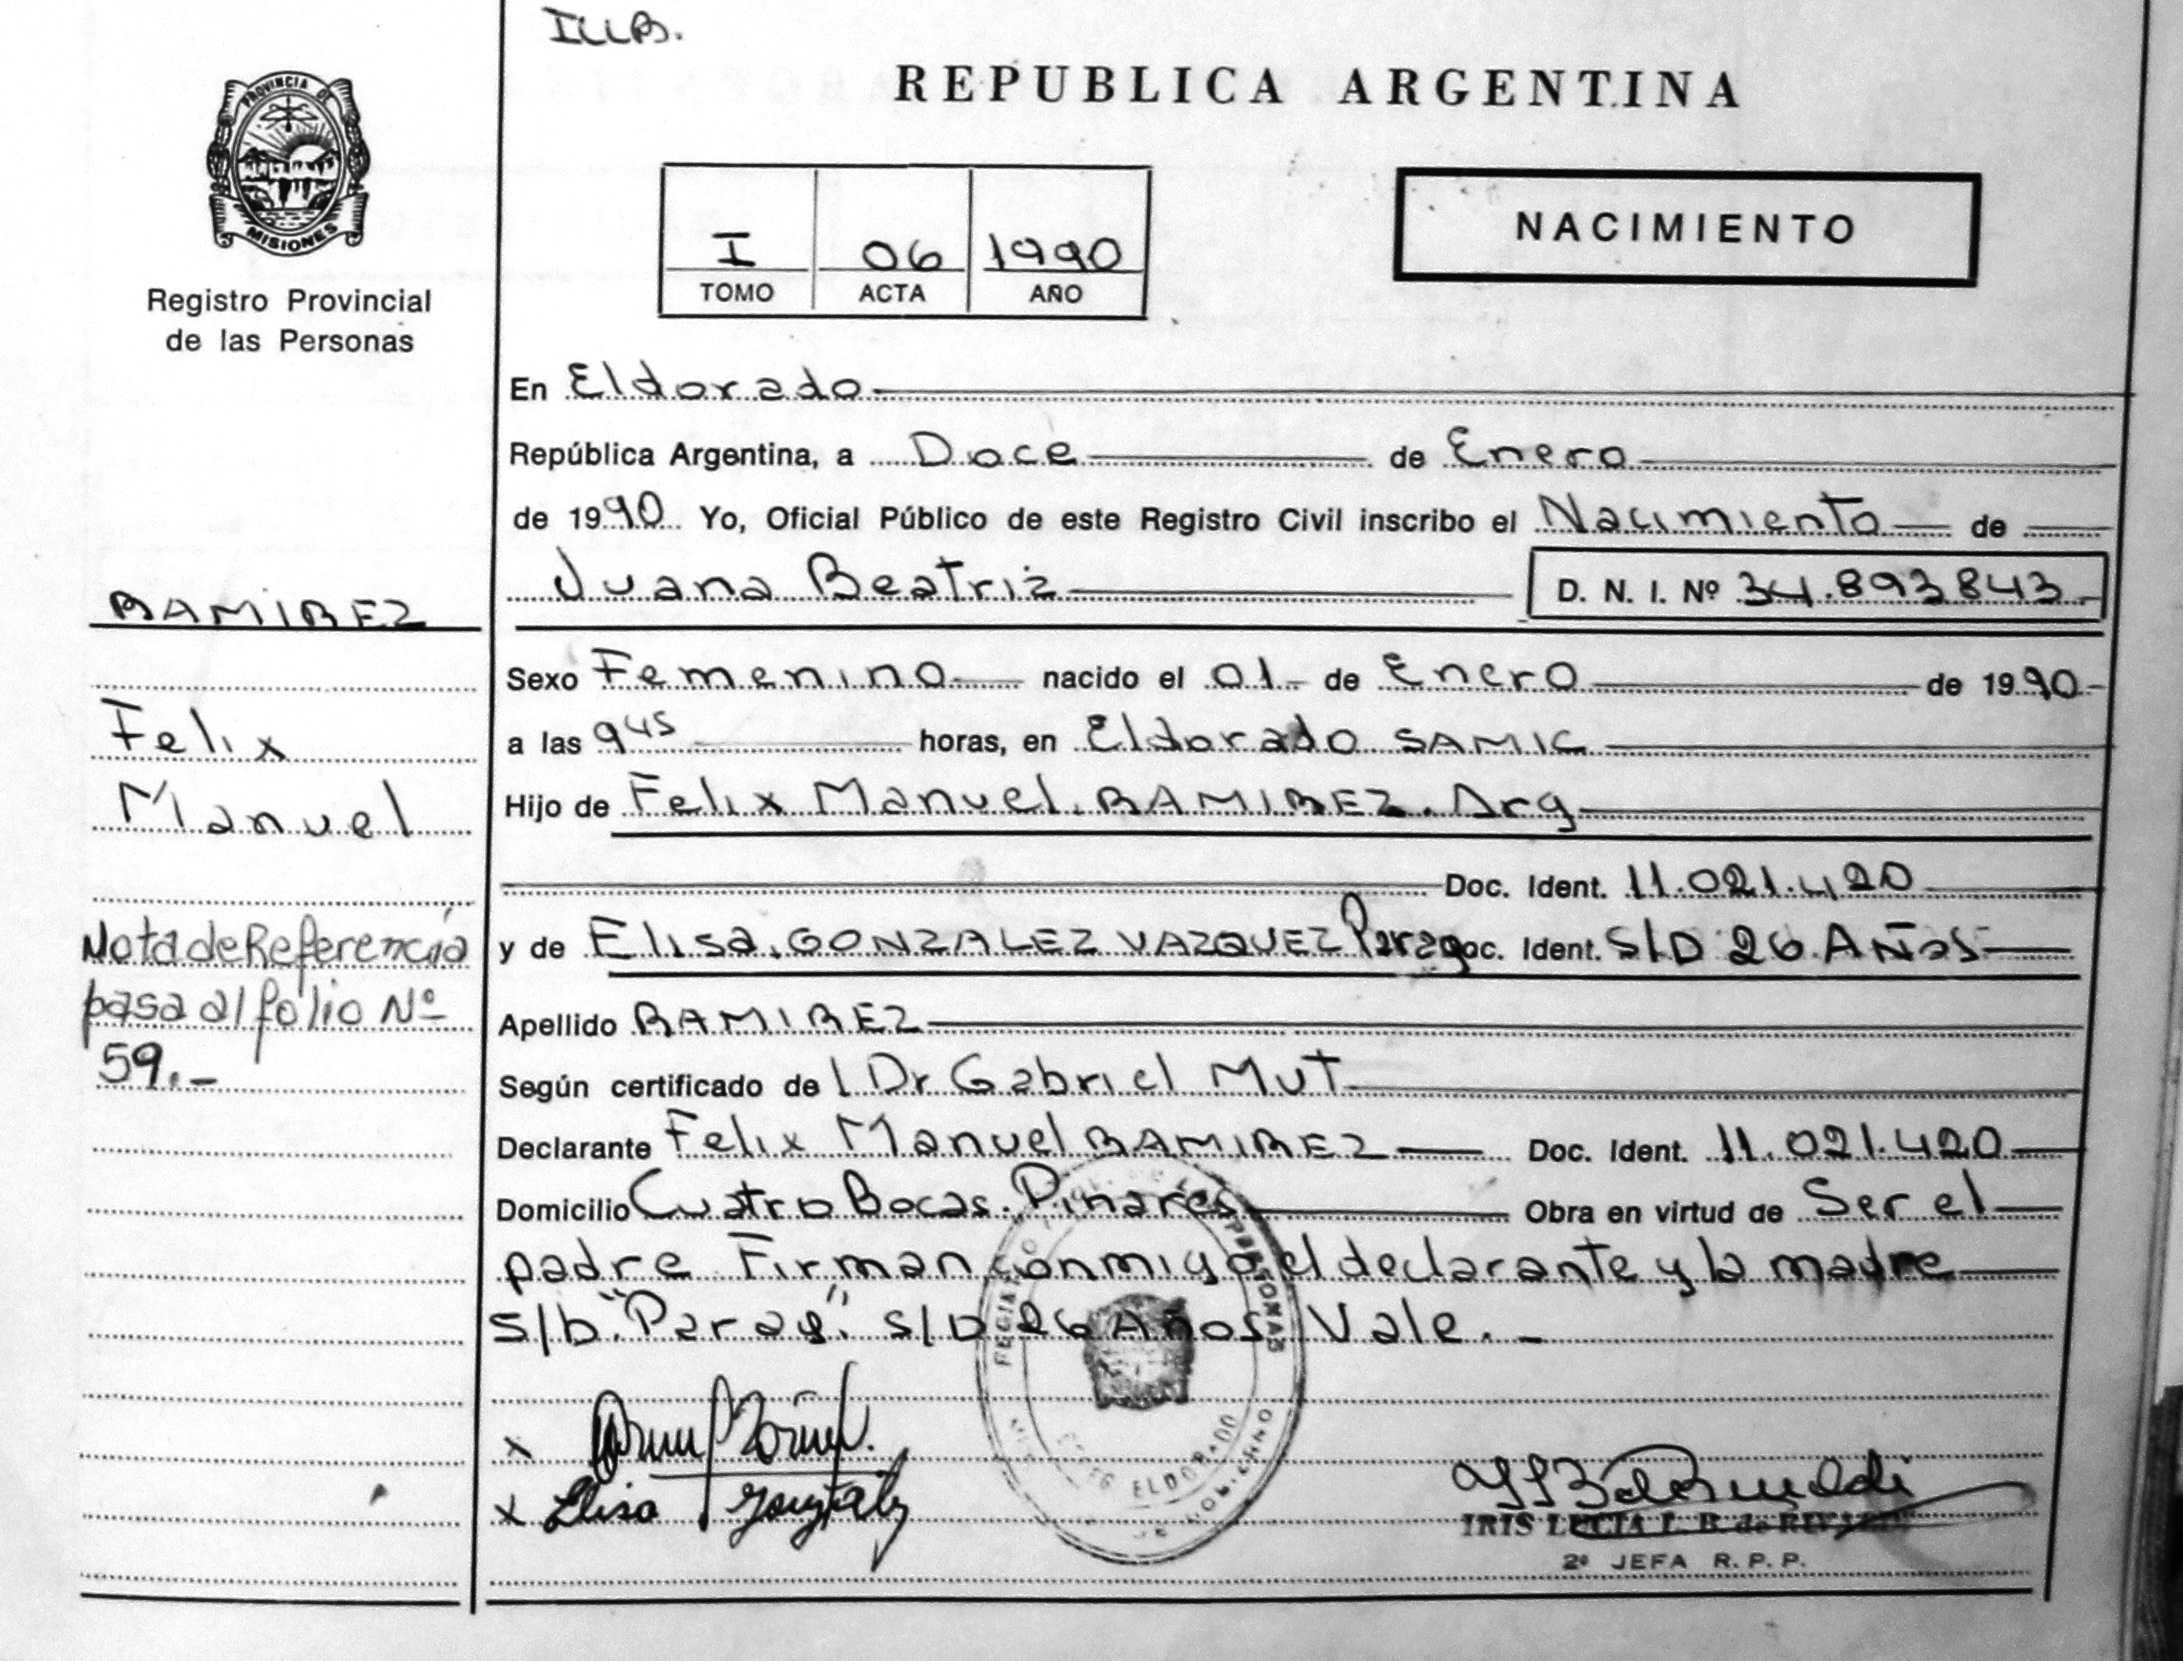 ILLB.
REPUBLICA ARGENTINA
PROVINCIA DE
MISIONES
Registro Provincial
de las Personas
I 06 1990
TOMO ACTA AÑO
NACIMIENTO
En Eldorado
República Argentina, a Doce de Enero
de 1990 Yo, Oficial Público de este Registro Civil inscribo el Nacimiento de
Juana Beatriz D. N. I. Nº 34.893843
RAMIREZ
Felix
Manuel
Nota de Referencia
pasa al folio Nº
59.-
Sexo Femenino nacido el 01 de Enero de 1990
a las 9 45 horas, en Eldorado SAMIC
Hijo de Felix Manuel. RAMIREZ. Arg
Doc. Ident. 11.021.420
y de Elisa. GONZALEZ VAZQUEZ Parag Doc. Ident. S/D 26 Años
Apellido RAMIREZ
Según certificado de l Dr Gabriel Mut
Declarante Felix Manuel RAMIREZ Doc. Ident. 11.021.420
Domicilio Cuatro Bocas. Pinares Obra en virtud de Ser el
padre Firman conmigo el declarante y la madre
S/b. "Parag". S/D 26 Años Vale.-
PERSONAS
ELDORADO
x
x Elisa Gonzalez
IRIS LUCIA L. B. de
2º JEFA R. P. P.